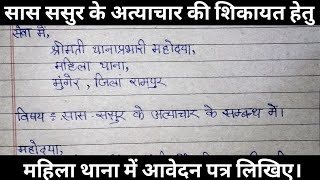 सास ससुर के अत्याचार की शिकायत हेतु
सेवा में,
श्रीमती थानाप्रभारी महोदया,
महिला थाना,
मुंगेर, जिला रामपुर
विषय :- सास-ससुर के अत्याचार के सम्बन्ध में।
महोदया,
महिला थाना में आवेदन पत्र लिखिए।